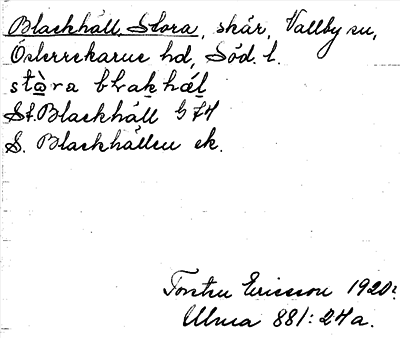 Blackhäll, Stora, skär, Vallby sn,
Österrekarne hd, Söd. l.
stòra blakhäl
St. Blackhäll G74
S. Blackhällen ek.
Torsten Ericsson 1920.
Ulma 881: 24 a.